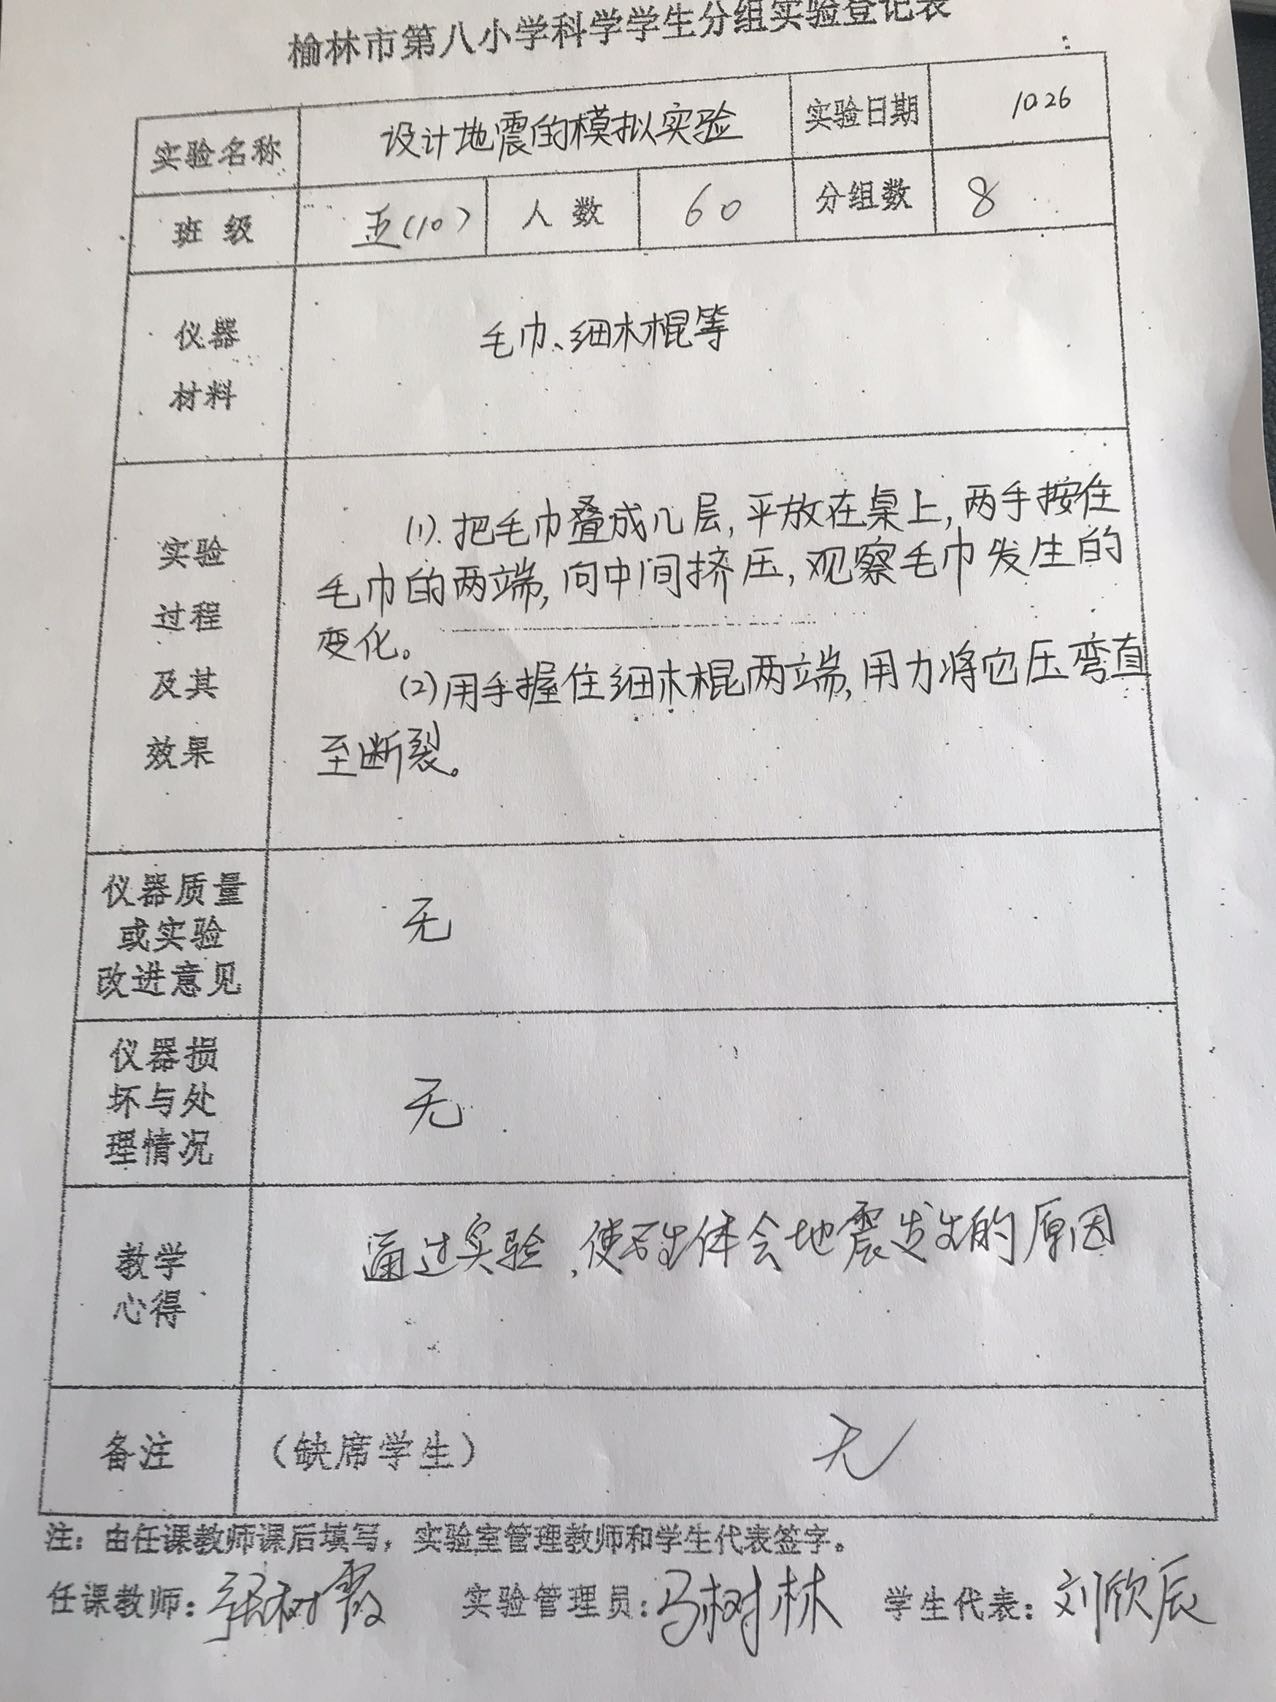 榆林市第八小学科学学生分组实验登记表
实验名称 设计地震的模拟实验 实验日期 1026
班级 五(10) 人数 60 分组数 8
仪器
材料
毛巾、细木棍等
实验
过程
及其
效果
(1).把毛巾叠成几层,平放在桌上,两手按住
毛巾的两端,向中间挤压,观察毛巾发生的
变化。
(2)用手握住细木棍两端,用力将它压弯直
至断裂。
仪器质量
或实验
改进意见
无
仪器损
坏与处
理情况
无
教学
心得
通过实验,使学生体会地震发生的原因
备注 (缺席学生) 无
注:由任课教师课后填写,实验室管理教师和学生代表签字。
任课教师:张树霞 实验管理员:马树林 学生代表:刘欣辰